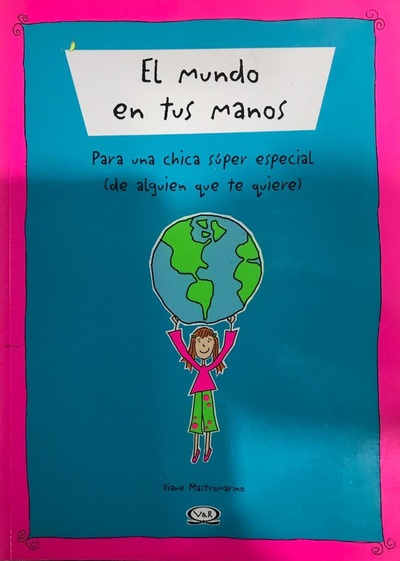 El mundo
en tus manos
Para una chica súper especial
(de alguien que te quiere)
Diane Mastromarino
V&R